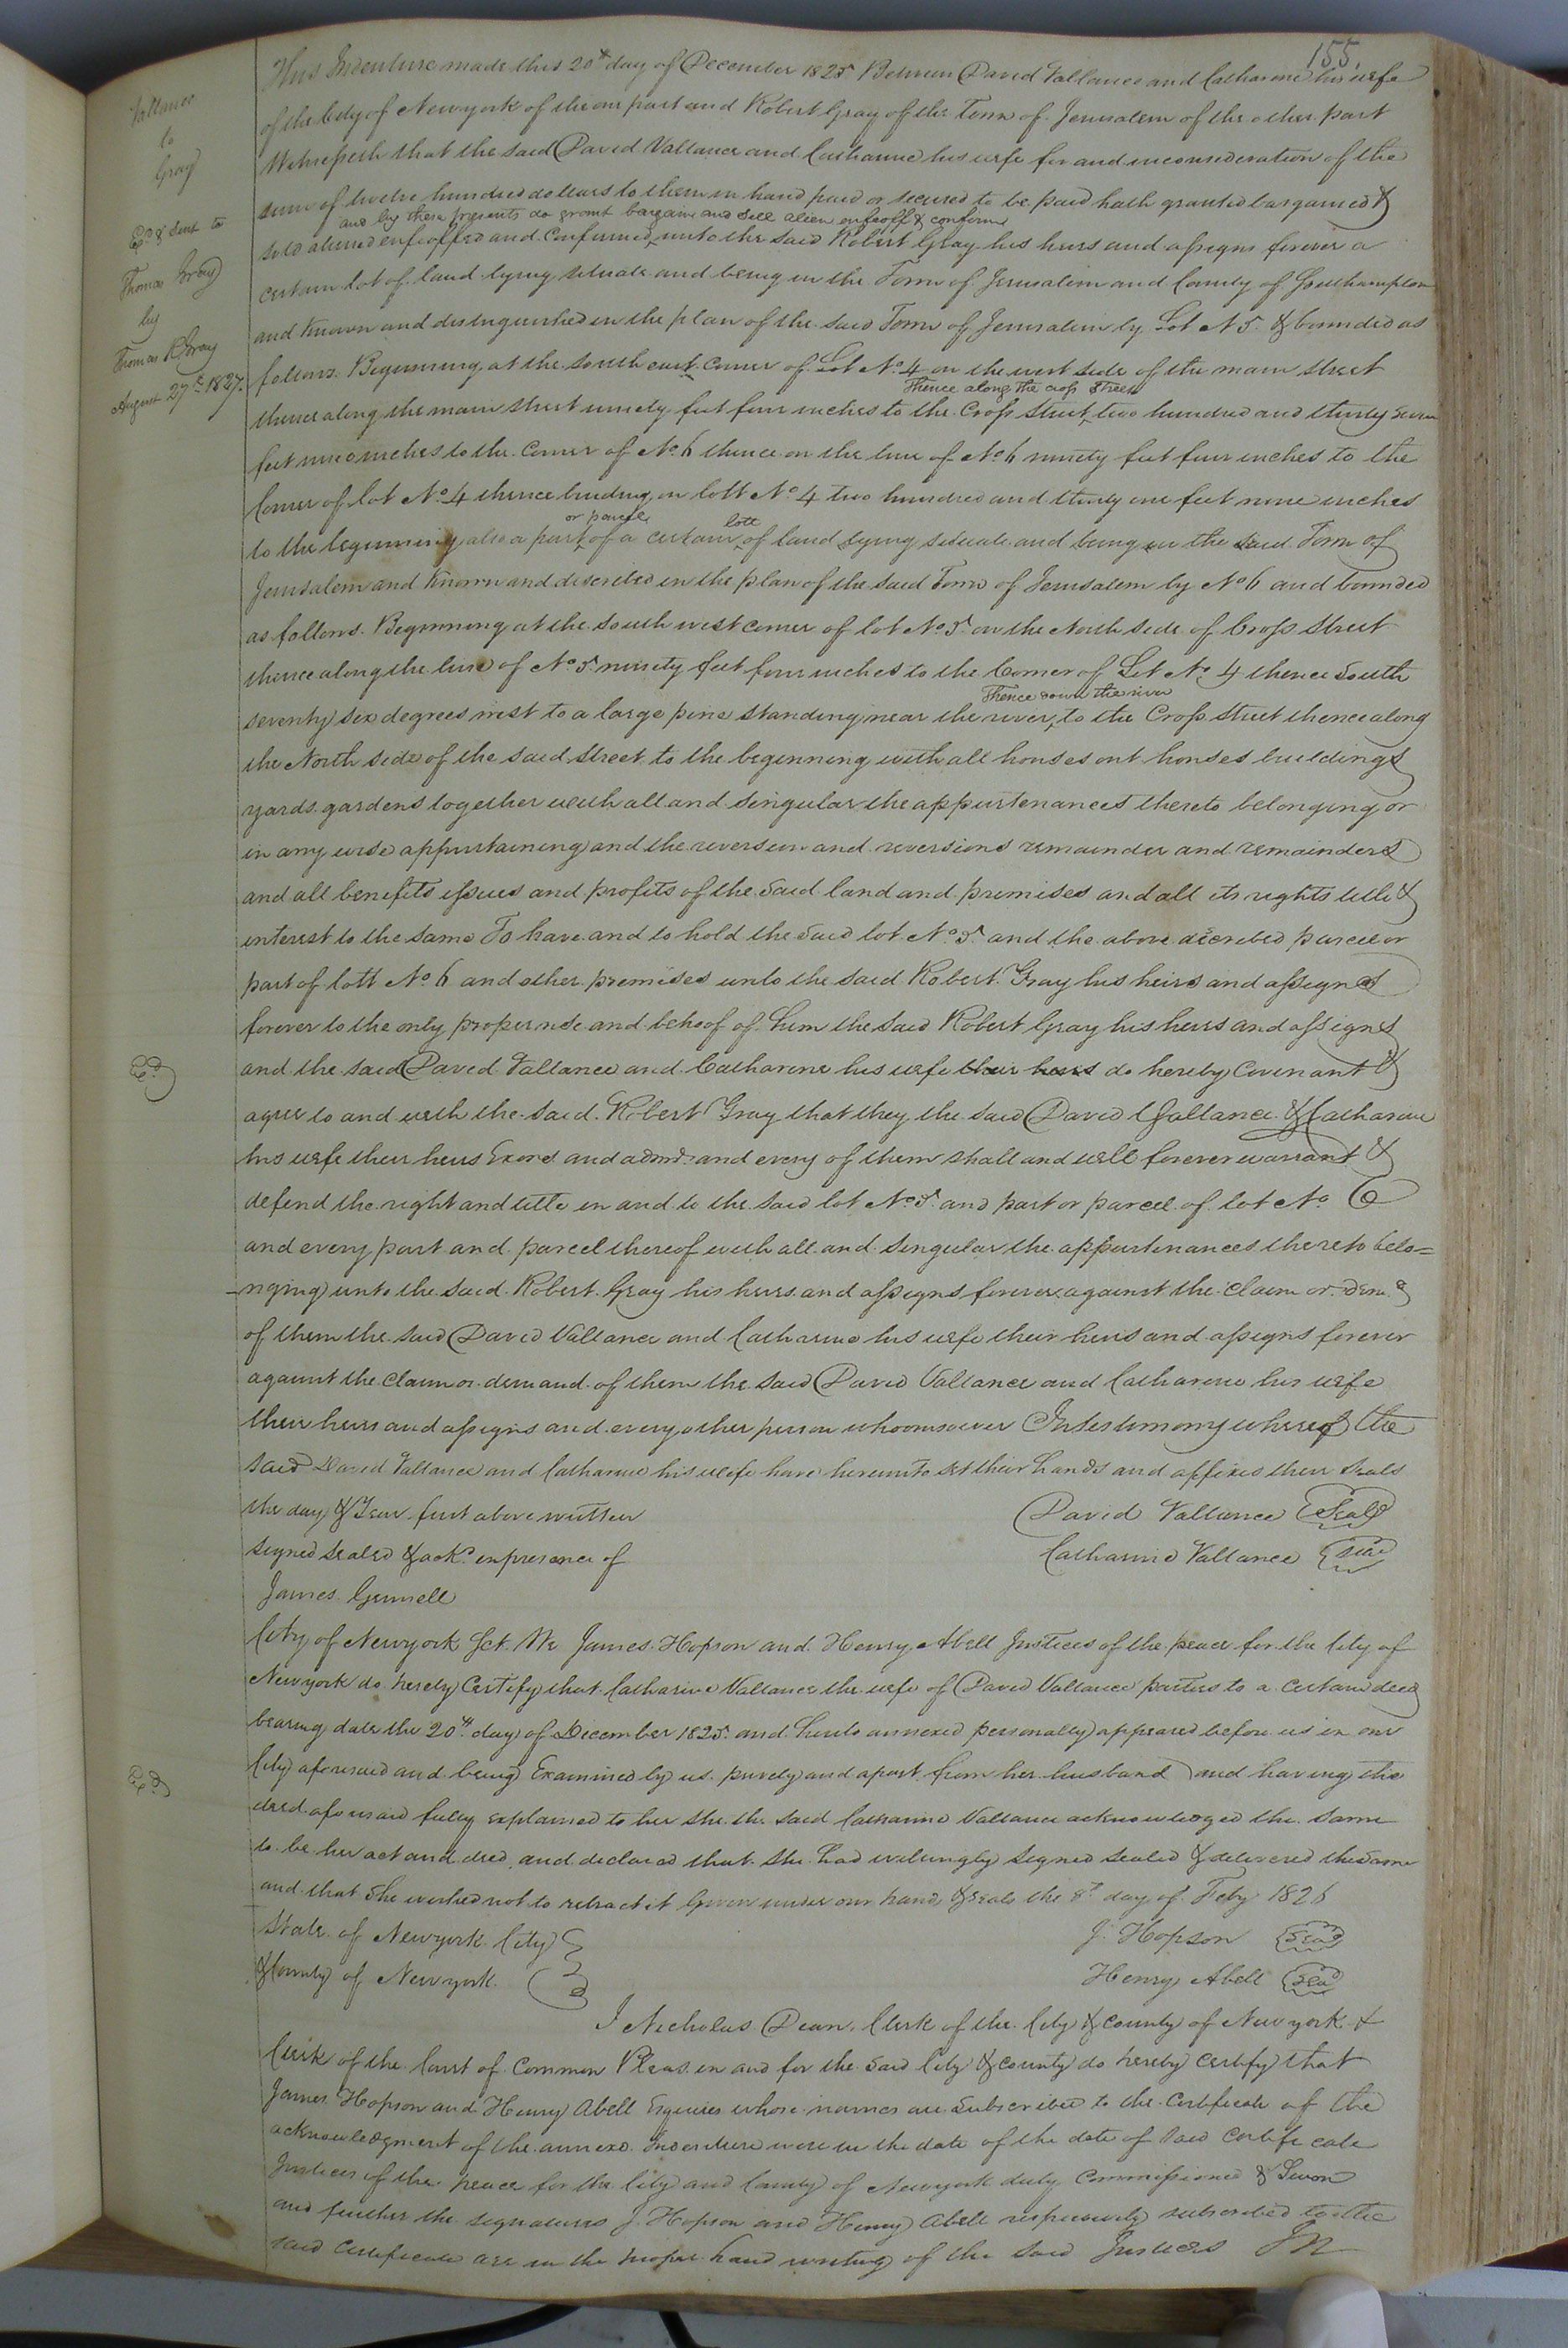 155
Vallance
to
Gray
Exd & sent to
Thomas Gray
by
Thomas R Gray
August 27th 1827.
This Indenture made this 20th day of December 1825 Between David Vallance and Catharine his wife
of the City of Newyork of the one part and Robert Gray of the Town of Jerusalem of the other part
Witnesseth that the said David Vallance and Catharine his wife for and inconsideration of the
sum of twelve hundred dollars to them in hand paid or secured to be paid hath granted bargained &
and by these presents do grant bargain and sell alien enfeoff & confirm
sold aliened enfeoffed and confirmed unto the said Robert Gray his heirs and assigns forever a
certain lot of land lying situate and being in the Town of Jerusalem and County of Southampton
and known and distinguished in the plan of the said Town of Jerusalem by Lot N 5 & bounded as
follows. Beginning at the south east corner of Lot No 4 on the west side of the main street
Thence along the cross street
thence along the main street ninety feet four inches to the Cross street two hundred and thirty seven
feet nine inches to the corner of No 6 thence on the line of No 6 ninety feet four inches to the
Corner of lot No 4 thence binding on lott No 4 two hundred and thirty one feet nine inches
or parcel lott
to the beginning also a part of a certain of land lying situate and being in the said Town of
Jerusalem and known and discribed in the plan of the said Town of Jerusalem by No 6 and bounded
as follows. Beginning at the south west corner of lot No 5 on the North side of Cross Street
thence along the line of No 5 ninety feet four inches to the Corner of Lot No 4 thence South
Thence down the river
seventy six degrees west to a large pine standing near the river, to the Cross street thence along
the North side of the said street to the beginning with all houses out houses buildings
yards gardens together with all and singular the appurtenances thereto belonging or
in any wise appurtaining and the reversion and reversions remainder and remainders
and all benefits issues and profits of the said land and premises and all its rights title &
interest to the same To have and to hold the said lot No 5 and the above discribed parcel or
part of lott No 6 and other premises unto the said Robert Gray his heirs and assigns
forever to the only proper use and behoof of him the said Robert Gray his heirs and assigns
and the said David Vallance and Catharine his wife their heirs do hereby Covenant &
agree to and with the said Robert Gray that they the said David Vallance & Catharine
his wife their heirs Exors and admrs and every of them shall and will forever warrant &
defend the right and title in and to the said lot No 5 and part or parcel of lot No 6
and every part and parcel thereof with all and singular the appurtenances thereto belo=
-nging unto the said Robert Gray his heirs and assigns forever against the claim or
of them the said David Vallance and Catharine his wife their heirs and assigns forever
against the claim or demand of them the said David Vallance and Catharine his wife
their heirs and assigns and every other person whoomsoever In testimony whereof the
said David Vallance and Catharine his wife have hereunto set their hands and affixed their seals
the day & Year first above written
David Vallance Seal
signed sealed & ackd in presence of
Catharine Vallance seal
James Gemmell
City of Newyork Sct. We James Hopson and Henry Abell Justices of the peace for the City of
Newyork do hereby Certify that Catharine Vallance the wife of David Vallance parties to a certain deed
bearing date the 20th day of December 1825 and hereto annexed personally appeared before us in our
City aforesaid and being Examined by us privily and apart from her husband and having the
deed aforesaid fully explained to her she the said Catharine Vallance acknowledged the same
to be her act and deed and declared that she had willingly signed sealed & delivered the same
and that she wished not to retract it Given under our hand & seals the 8th day of Feby 1826
State of Newyork City
J. Hopson Seal
& County of Newyork
Henry Abell Seal
I Nicholas Dean, Clerk of the City & County of Newyork &
Clerk of the Court of Common Pleas in and for the said City & County do hereby certify that
James Hopson and Henry Abell Esquires whose names are subscribed to the Certificate of the
acknowledgment of the annexd Indenture were in the date of the date of said certificate
Justices of the peace for the City and County of Newyork duly Commissioned & Sworn
and further the signatures J. Hopson and Henry Abell respectively subscribed to the
said certificate are in the proper hand writing of the said Justices In